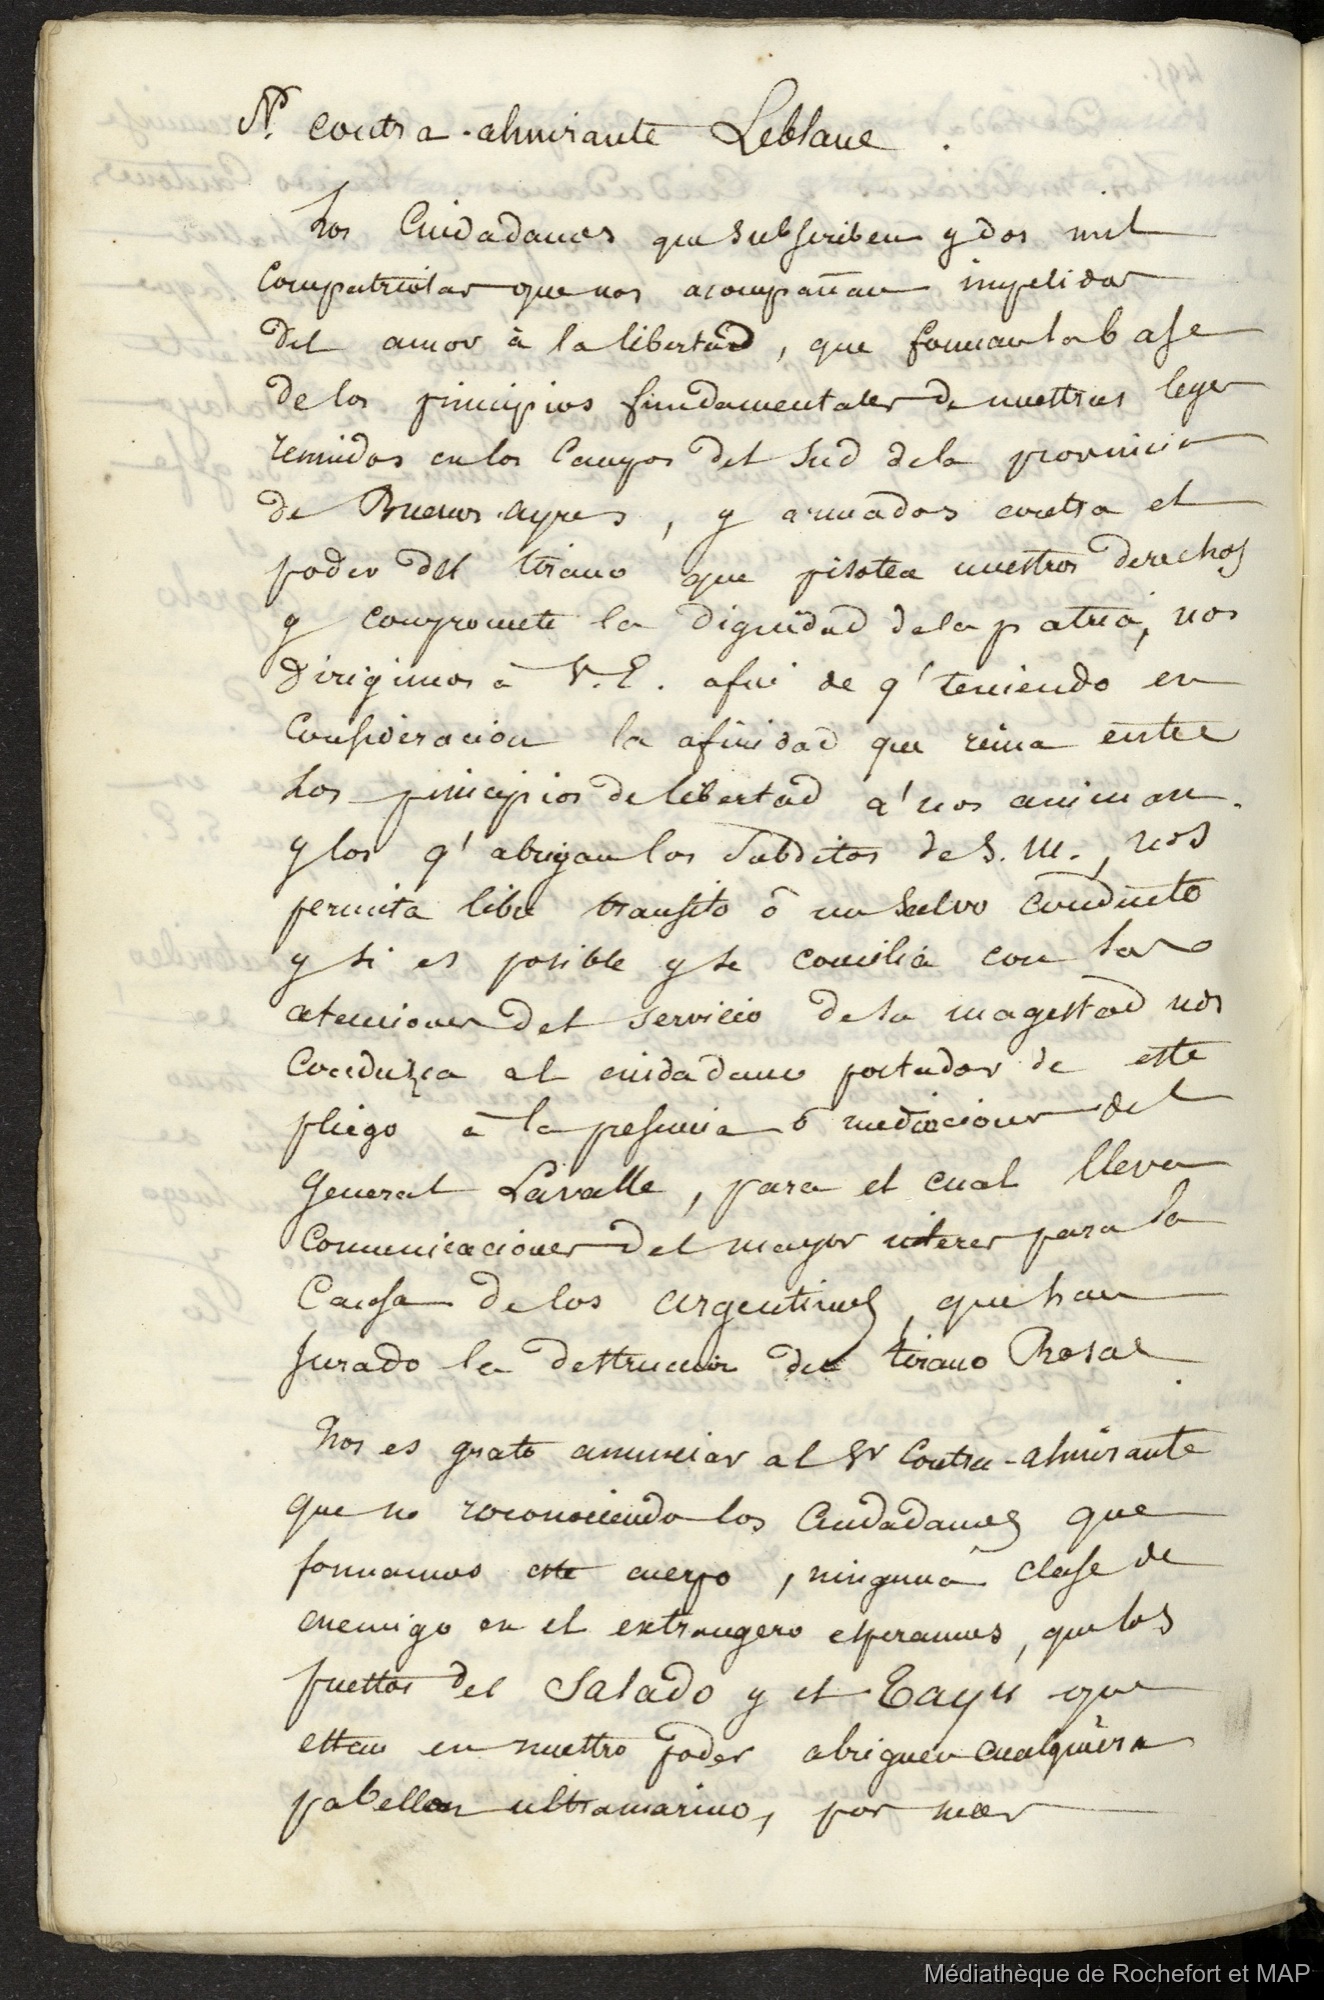 Sr. contra-almirante Leblanc.
Los Cuidadanos que subscriben y dos mil
compatriotas que nos acompañan impelidos
del amor à la libertad, que forman la base
de los principios fundamentales de nuestras leyes
reunidos en los Campos del Sud de la provincia
de Buenos-ayres, y armados contra el
poder del tirano que pisotea nuestros derechos
y compromete la dignidad de la patria, nos
dirigimos à V. E. afin de q' teniendo en
Consideracion la afinidad que reina entre
Los principios de libertad q' nos animan.
y los q' abrigan los Subditos de S. M., nos
permita libre transito ó un Salvo conducto
y si es posible y se concilia con las
atenciones del servicio de la magestad nos
Conduzca al cuidadano portador de este
pliego à la presencia ó mediaciones del
General Lavalle, para el cual lleva
Comunicaciones del mayor interes para la
Causa de los argentinos, que han
Jurado la destruccion del tirano Rosas
.
Nos es grato anunciar al Sr Contra-almirante
que no roconociendo los Ciudadanos que
formamos este cuerpo, ninguna clase de
enemigo en el extrangero esperamos, que los
puettos del Salado y el Tayu que
ettan en nuettro poder abriguen cualquiera
pabellon ultramarino, por mar
Médiathèque de Rochefort et MAP